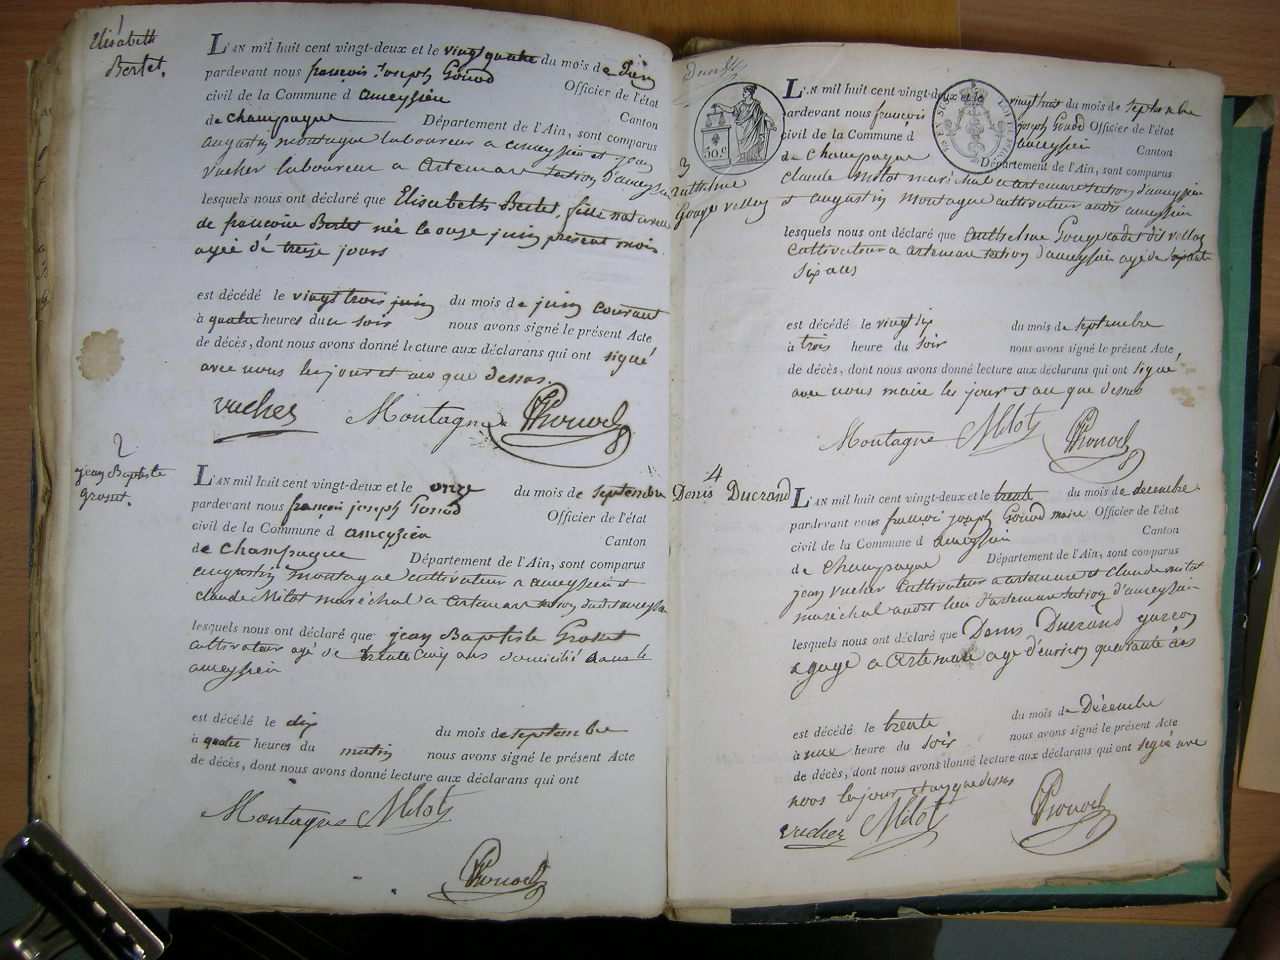 1
Elisabeth
Bertet.
L'AN mil huit cent vingt-deux et le vingt quatre du mois de Juin
pardevant nous françois Joseph Gonod Officier de l'état
civil de la Commune d ameyzieu Canton
de champagne Département de l'Ain, sont comparus
augustin montagne laboureur a ameyzieu et jean
vucher laboureur a Artemare section d'ameyzieu
lesquels nous ont déclaré que Elisabeth Bertet, fille naturelle
de francoise Bertet née le onze juin présent mois
agée de treize jours
est décédé le vingt trois juin du mois de juin courant
à quatre heures du soir nous avons signé le présent Acte
de décès, dont nous avons donné lecture aux déclarans qui ont signé
avec nous les jour et an que dessus.
vucher Montagne Gonod
2
jean Baptiste
Grosset.
L'AN mil huit cent vingt-deux et le onze du mois de septembre
pardevant nous françois joseph Gonod Officier de l'état
civil de la Commune d ameyzieu Canton
de Champagne Département de l'Ain, sont comparus
augustin montagne cultivateur a ameyzieu et
claude Milot maréchal a artemare section dudit ameyzieu
lesquels nous ont déclaré que jean Baptiste Grosset
cultivateur agé de trente cinq ans domicilié dans le
ameyzieu
est décédé le dix du mois de septembre
à quatre heures du matin nous avons signé le présent Acte
de décès, dont nous avons donné lecture aux déclarans qui ont
Montagne Milot
Gonod
50 c
3
anthelme
Gouge
L'AN mil huit cent vingt-deux et le vingt huit du mois de septembre
pardevant nous françois joseph Gonod Officier de l'état
civil de la Commune d ameyzieu Canton
de Champagne Département de l'Ain, sont comparus
claude Milot maréchal a artemare section d'ameyzieu
et augustin Montagne cultivateur audit ameyzieu
lesquels nous ont déclaré que anthelme Gouge cadet dit
cultivateur a artemare section d'ameyzieu agé de soixante
six ans
est décédé le vingt six du mois de septembre
à trois heure du soir nous avons signé le présent Acte
de décès, dont nous avons donné lecture aux déclarans qui ont signé
avec nous maire les jour et an que dessus
Montagne Milot Gonod
4
Denis Ducrand
L'AN mil huit cent vingt-deux et le trente du mois de decembre
pardevant nous francois joseph Gonod maire Officier de l'état
civil de la Commune d ameyzieu Canton
de Champagne Département de l'Ain, sont comparus
jean vucher cultivateur a artemare et claude milot
maréchal audit lieu d'artemare section d'ameyzieu
lesquels nous ont déclaré que Denis Ducrand garcon
a gage a Artemare age d'environ quarante ans
est décédé le trente du mois de Décembre
à heure du soir nous avons signé le présent Acte
de décès, dont nous avons donné lecture aux déclarans qui ont signé avec
nous les jour et an que dessus
vucher Milot Gonod